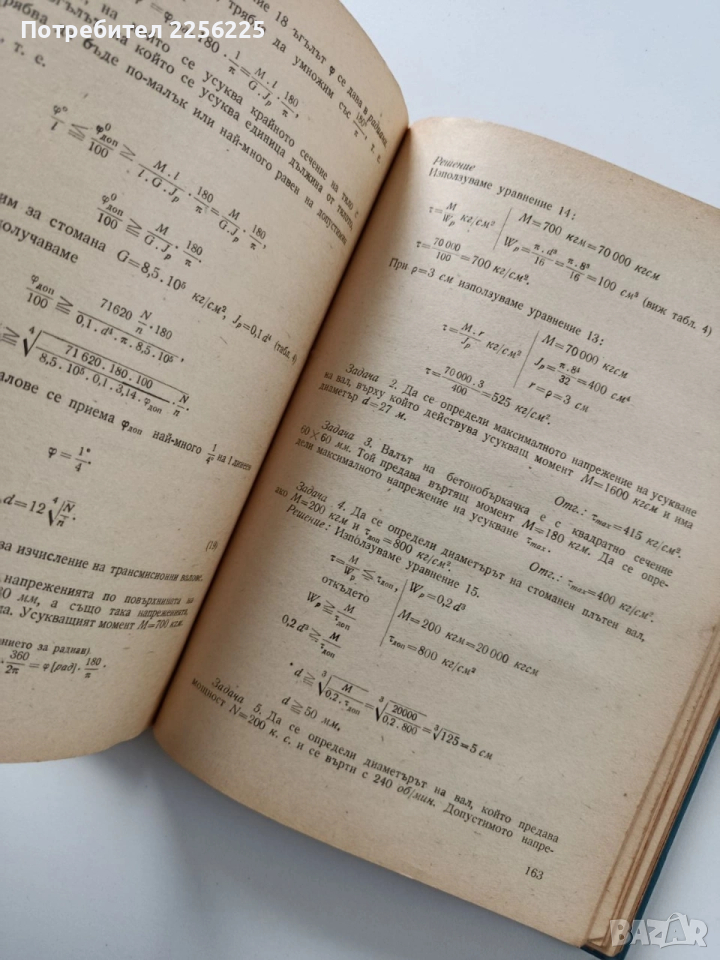 Потребител 2256225
ние 18 ъгълът φ се дава в радиани,
трябва да умножим със 180°/π, т. е.
φ° = M . l / G . Jₚ · 180/π,
ъгълът, на който се усуква крайното сечение на тяло с
на който се усуква единица дължина от тялото,
трябва да бъде по-малък или най-много равен на допустимия
т. е.
φ°/l ≦ φ⁰доп/100 ≧ M . l / l . G . Jₚ · 180/π = M / G . Jₚ · 180/π,
φ⁰доп/100 ≧ M / G.Jₚ · 180/π.
им за стомана G=8,5.10⁵ кг/см², Jₚ=0,1d⁴ (табл. 4)
олучаваме
φдоп/100 ≧ 71620 N/n . 180 / 0,1 . d⁴ . π . 8,5.10⁵
⁴√ 71 620 . 180 . 100 / 8,5 . 10⁵ . 0,1 . 3,14 . φдоп · N/n .
алове се приема φдоп най-много 1/4° на 1 линеен
φ = 1°/4 .
d = 12 ⁴√ N/n .
(18)
за изчисление на трансмисионни валове.
напреженията по повърхнината на
0 мм, а също така напреженията
да. Усукващият момент M=700 кгм.
нието за радиан)
· 360/2π = φ [рад] · 180/π .
Решение
Използуваме уравнение 14:
τ = M/Wₚ кг/см² | M=700 кгм=70 000 кгсм
τ = 70 000/100 = 700 кг/см². | Wₚ = π . d³/16 = π . 8³/16 = 100 см³ (виж табл. 4)
При ρ=3 см използуваме уравнение 13:
τ = M . r/Jₚ кг/см² | M=70 000 кгсм
τ = 70 000 . 3/400 = 525 кг/см². | Jₚ = π . 8⁴/32 = 400 см⁴
r=ρ=3 см
Задача 2. Да се определи максималното напрежение на усукване
на вал, върху който действува усукващ момент M=1600 кгсм и има
диаметър d=27 м.
Отг.: τmax=415 кг/см².
Задача 3. Валът на бетонобъркачка е с квадратно сечение
60 × 60 мм. Той предава въртящ момент M=180 кгм. Да се опре-
дели максималното напрежение на усукване τmax.
Отг.: τmax=400 кг/см².
Задача 4. Да се определи диаметърът на стоманен плътен вал,
ако M=200 кгм и τдоп=800 кг/см².
Решение.: Използуваме уравнение 15.
τ = M/Wₚ ≦ τдоп, | Wₚ=0,2 d³
откълето
Wₚ ≧ M/τдоп | M=200 кгм=20 000 кгсм
0,2 d³ ≧ M/τдоп | τдоп=800 кг/см²
d ≧ ³√ M / 0,2 . τдоп = ³√ 20000 / 0,2 . 800 = ³√125 = 5 см
d ≧ 50 мм.
Задача 5. Да се определи диаметърът на вал, който предава
мощност N=200 к. с. и се върти с 240 об/мин. Допустимото напре-
163
BAZAR